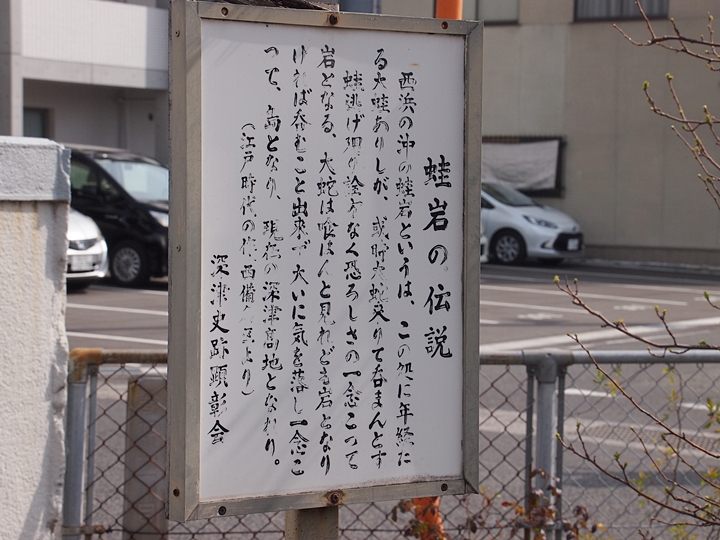 蛙岩の伝説
西浜の沖の蛙岩というは、この処に年経た
る大蛙ありしが、或時大蛇来りて呑まんとす
蛙逃げ廻り詮方なく恐ろしさの一念こつて
岩となる、大蛇は喰はんと見れども岩となり
ければ呑むこと出来ず大いに気を落し一念こ
つて、島となり、現在の深津高地となれり。
(江戸時代の作、西備より)
深津史跡顕彰会